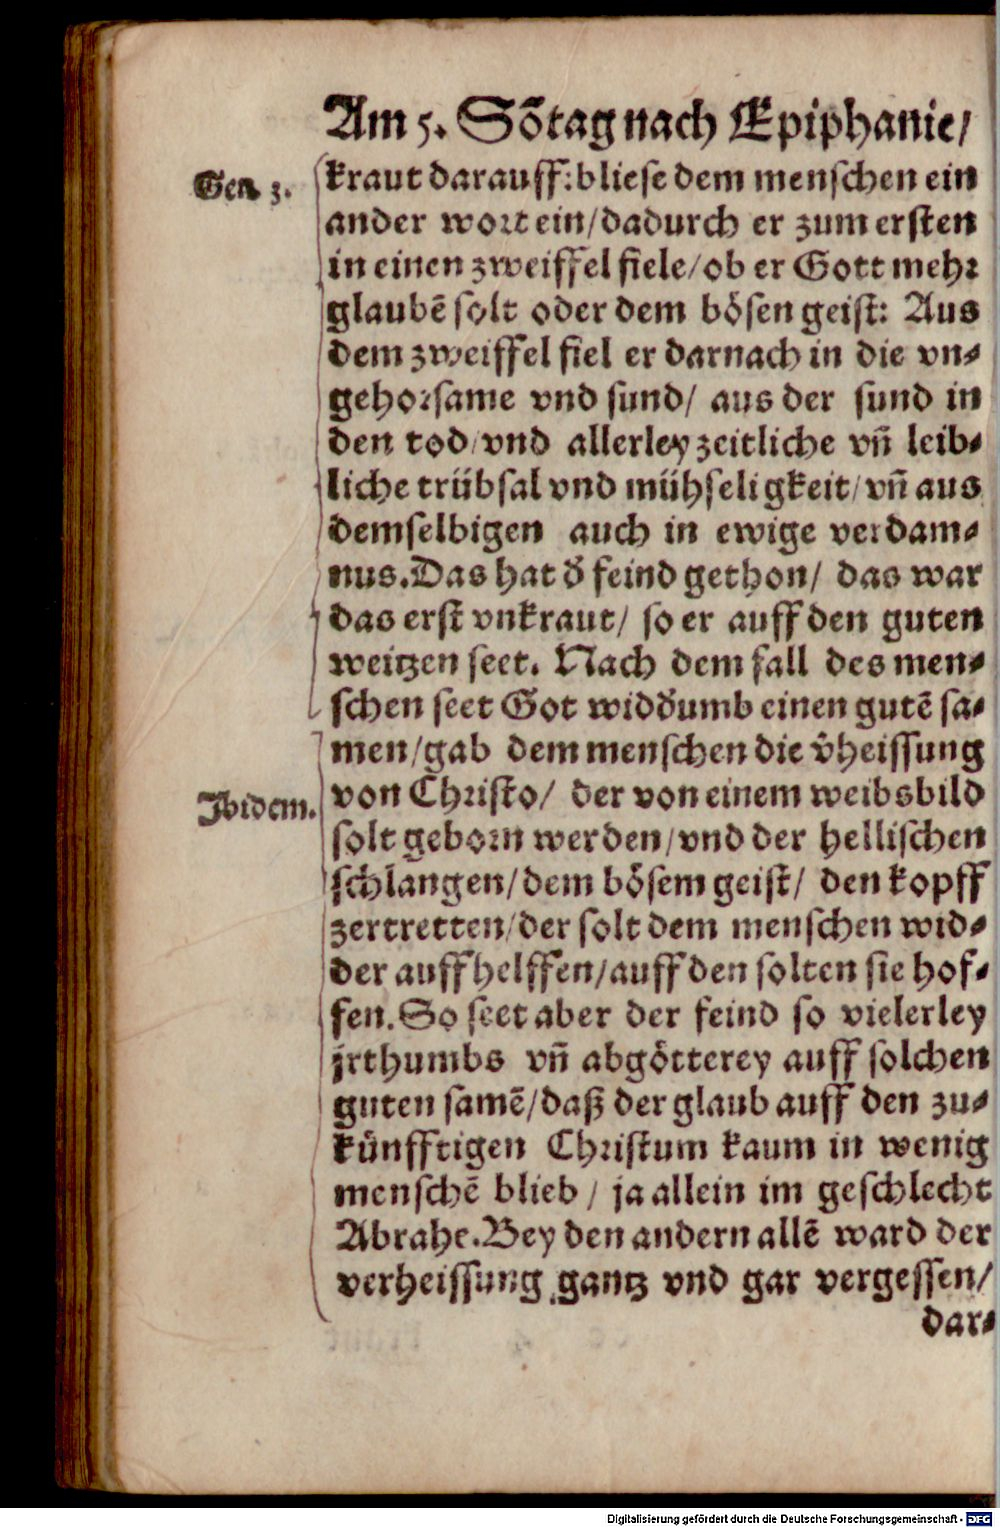 Am 5. Sõtag nach Epiphanie/
Gen. 3.
kraut darauff: bliese dem menschen ein
ander wort ein/ dadurch er zum ersten
in einen zweiffel fiele/ ob er Gott mehr
glaubẽ solt oder dem bösen geist: Aus
dem zweiffel fiel er darnach in die vn-
gehorsame vnd sund/ aus der sund in
den tod/ vnd allerley zeitliche vñ leib-
liche trübsal vnd mühseligkeit/ vñ aus
demselbigen auch in ewige verdam-
nus. Das hat d̾ feind gethon/ das war
das erst vnkraut/ so er auff den guten
weitzen seet. Nach dem fall des men-
schen seet Got widd̾umb einen gutẽ sa-
men/ gab dem menschen die v̾heissung
Ibidem.
von Christo/ der von einem weibsbild
solt geborn werden/ vnd der hellischen
schlangen/ dem bösem geist/ den kopff
zertretten/ der solt dem menschen wid-
der auffhelffen/ auff den solten sie hof-
fen. So seet aber der feind so vielerley
jrthumbs vñ abgötterey auff solchen
guten samẽ/ daß der glaub auff den zu-
künfftigen Christum kaum in wenig
menschẽ blieb/ ja allein im geschlecht
Abrahe. Bey den andern allẽ ward der
verheissung gantz vnd gar vergessen/
dar-
Digitalisierung gefördert durch die Deutsche Forschungsgemeinschaft - DFG